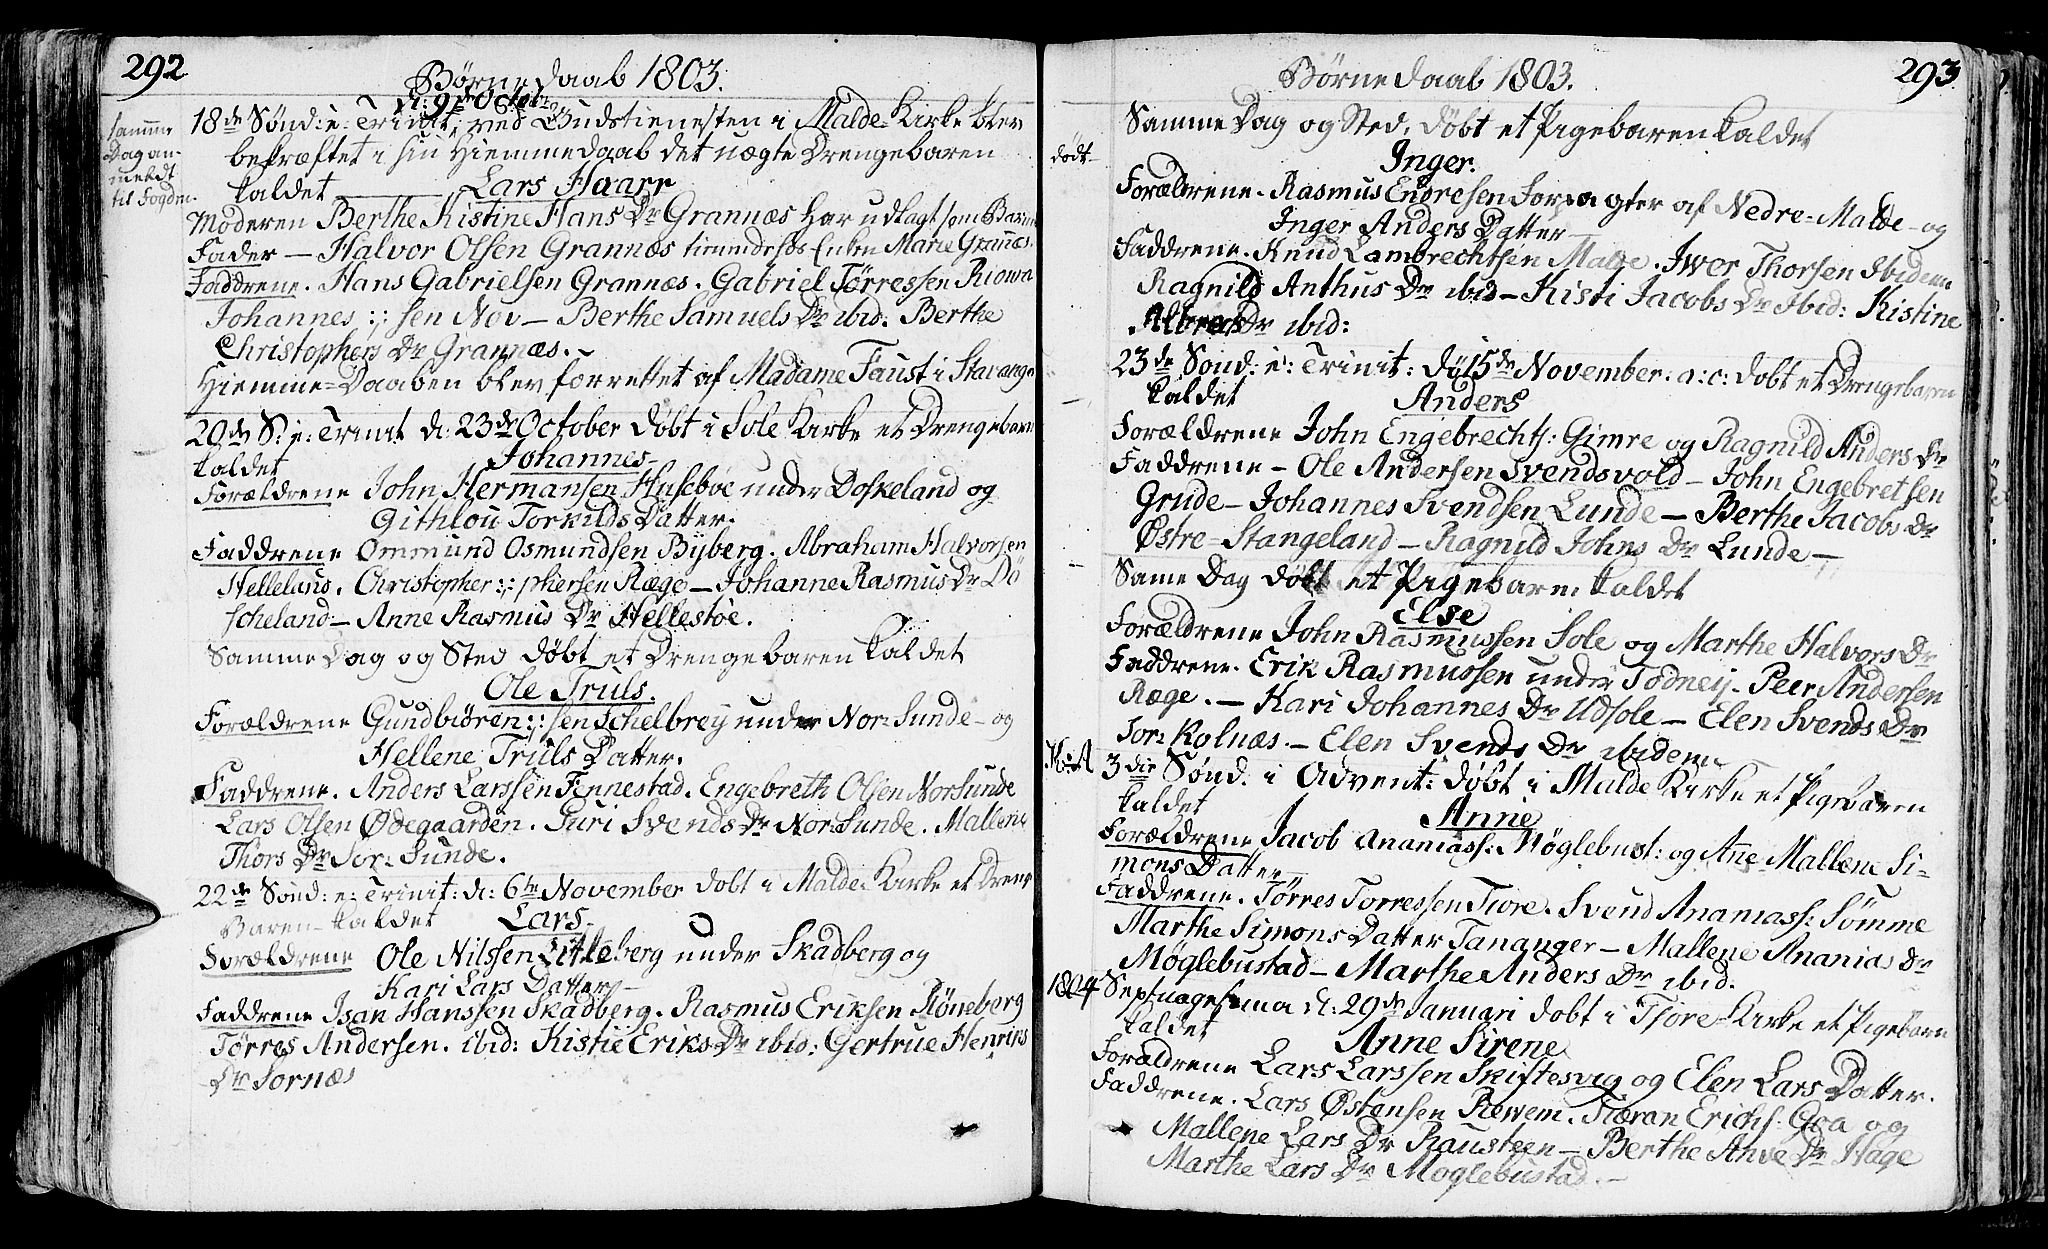 292
Børne daab 1803.
d: 9de Octobr
18de Sønd: e: Trinit: ved Gudstienesten i Malde Kirke blev
samme
Dag an-
meldt
til Fogden.
bekræftet i sin Hiemmedaab det uægte Drengebaren
kaldet ——— Lars Haarr
Moderen Berthe Kistine Hans Dr Grannæs har udlagt som Barne
Fader — Halvor Olsen Grannæs tienendes hos Enken Marie Grannæs.
Faddrene. Hans Gabrielsen Grannæs. Gabriel Tørressen Riowa
Johannes :,: sen Nov — Berthe Samuels Dr ibid. Berthe
Christophers Dr Grannæs. —
Hiemme=Daaben blev forrettet af Madame Faust i Stavange
20de S: e: Trinit d: 23de October døbt i Sole Kirke et Drengebarn
kaldet
Johannes
Forældrene John Hermansen Husebøe under Doskeland og
Githlou Torkilds Datter.
Faddrene Ommund Osmundsen Byberg. Abraham Halvorsen
Helleland. Christopher :,: phersen Ræge — Johanne Rasmus Dr Dö
scheland — Anne Rasmus Dr Hellestöe.
Samme Dag og Sted døbt et Drengebaren kaldet
Ole Truls.
Forældrene Gundbiören :,: sen Schelbrey under Nor: Sunde — og
Hellene Truls Datter.
Faddrene. Anders Larssen Fennestad. Engebreth Olsen Nor Sunde
Lars Olsen Ødegaarden. Guri Svends Dr Nor: Sunde. Mallene
Thors Dr Sør: Sunde.
22de Sønd: e: Trinit: d: 6te November døbt i Malde Kirke et Dreng
Baren — kaldet Lars
Forældrene Ole Nilssen Litleberg under Skadberg og
Kari Lars Datter —
Faddrene Isak Hanssen Skadberg. Rasmus Eriksen Röneberg
Tørres Andersen. ibid: Kistie Eriks Dr ibid: Gertrue Henriks
Dr Sörnæs
293
Børne daab 1803.
Samme Dag og Sted, døbt et Pigebaren kaldet
dødt
Inger.
Forældrene. Rasmus Endresen Forpagter af Nedre=Malde — og
Inger Anders Datter —
Faddrene. Knud Lambrechtsen Malde. Iver Thorsen Ibidem
Ragnild Anthus Dr ibid — Kisti Jacobs Dr Ibid: Kistine
Albrets Dr ibid:
23de Sönd: e: Trinit: dö 15de November. a: c: døbt et Drengebaren
kaldet Anders
Forældrene John Engebrechts: Gimre og Ragnild Anders Dr
Faddrene — Ole Andersen Svendsvold — John Engebretsen
Grude — Johannes Svendsen Lunde — Berthe Jacobs Dr
Østre=Stangeland — Ragnild Johns Dr Lunde —
Same Dag døbt et Pigebarn. kaldet
Else
Forældrene John Rasmussen Sole og Marthe Halvors Dr
Faddrene. Erik Rasmussen under Todneij — Peer Andersen
Ræge. — Kari Johannes Dr Udsole — Elen Svends Dr
Sør: Kolnæs. — Elen Svends Dr ibidem
3die Sønd. i Advent: døbt i Malde Kirke et Pigebaren
kaldet
Anne
Forældrene Jacob Ananiass: Møglebust: og Ane Mallene Si-
mons Datter
Faddrene. Tørres Torressen Tiore. Svend Ananiass: Sømme
Marthe Simons Datter Tananger — Mallene Ananias Dr
Møglebustad — Marthe Anders Dr ibid.
1804
Septuagesima d: 29de Januari døbt i Tjore=Kirke et Pigebarn
kaldet
Anne Sirene
Foraldrene Lars Larssen Skiftesvig og Elen Lars Datter.
Faddrene. Lars Østensen Rewem. Tiæran Erichs: Goa og
Mallene Lars Dr Rausteen — Berthe Anve Dr Hage
Marthe Lars Dr Moglebustad. —